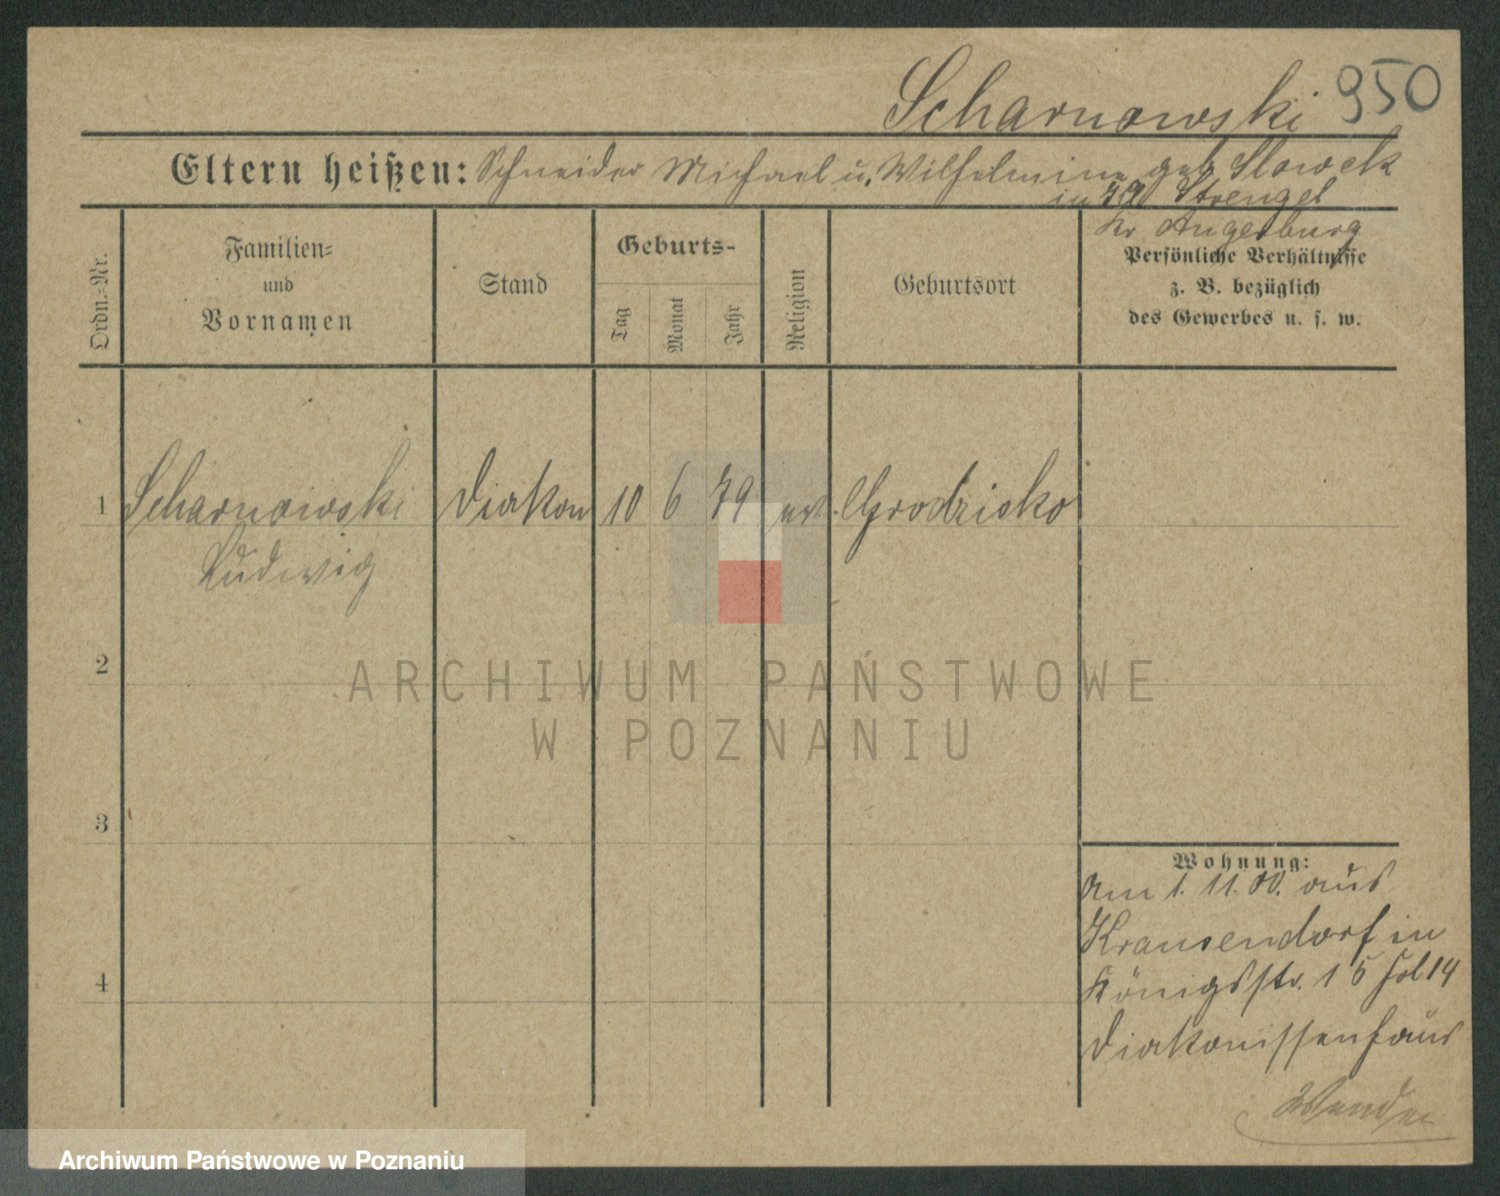 Scharnowski 950
Eltern heißen: Schneider Michael u. Wilhelmine geb Slowek
in Strengel
Kr Angerburg
Ordn.-Nr.
Familien-
und
Vornamen
Stand
Geburts-
Tag
Monat
Jahr
Religion
Geburtsort
Persönliche Verhältnisse
z. B. bezüglich
des Gewerbes u. s. w.
1 Scharnowski Diakon 10 6 79 ev. Grodzisko
Ludwig
2
ARCHIWUM PAŃSTWOWE
W POZNANIU
3
4
Wohnung:
am 1. 11. 00. aus
Krausendorf in
Königsstr. 15 fol 14
Diakonissenhaus
Archiwum Państwowe w Poznaniu